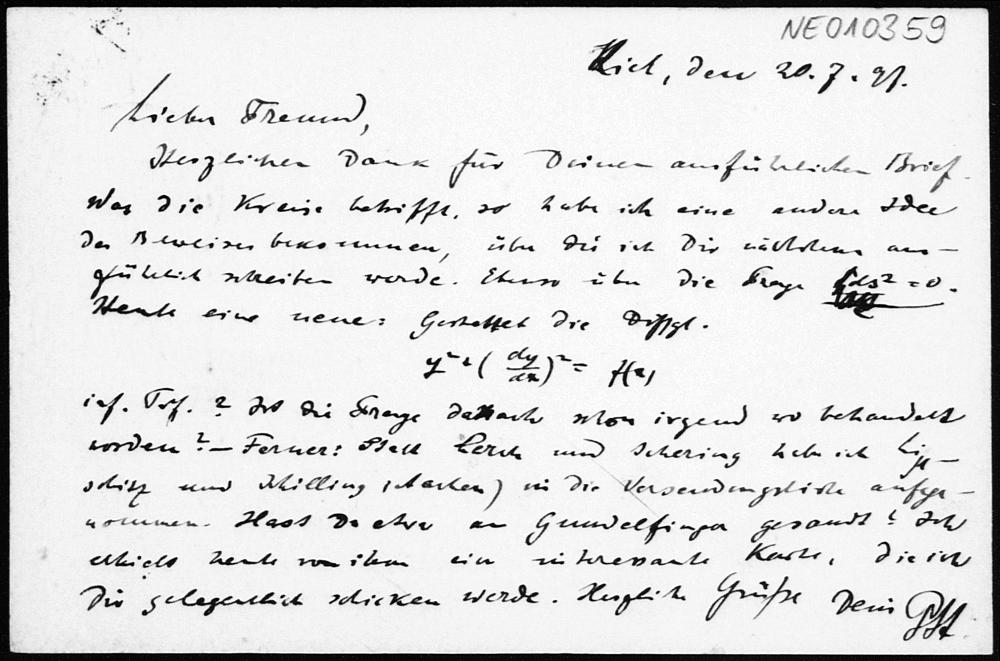 NE010359
Kiel, den 20.7.97.
Lieber Freund,
Herzlichen Dank für Deinen ausführlichen Brief.
Was die Kreise betrifft, so habe ich eine andere Idee
des Beweises bekommen, über die ich Dir nächstens aus-
führlich schreiben werde. Ebenso über die Frage ds² = 0.
Heute eine neue: Gestattet die Diffgl.
y² + (dy/dx)² = f(x)
inf. Trf.? Ist die Frage danach schon irgend wo behandelt
worden? – Ferner: Statt Lerch und Schering habe ich Lip-
schitz und Schilling (Aachen) in die Versendungsliste aufge-
nommen. Hast Du etwa an Gundelfinger gesandt? Ich
erhielt heute von ihm eine interessante Karte, die ich
Dir gelegentlich schicken werde. Herzliche Grüße Dein